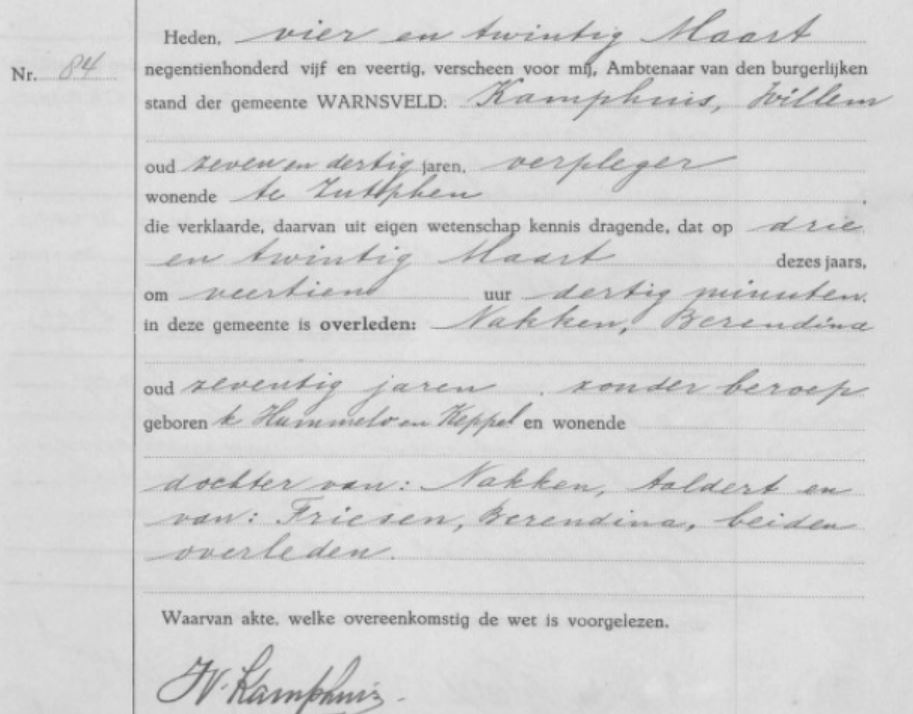 Heden, vier en twintig Maart
Nr. 84 negentienhonderd vijf en veertig, verscheen voor mij, Ambtenaar van den burgerlijken
stand der gemeente WARNSVELD: Kamphuis, Willem
oud zeven en dertig jaren, verpleger
wonende te Zutphen
die verklaarde, daarvan uit eigen wetenschap kennis dragende, dat op drie
en twintig Maart dezes jaars,
om veertien uur dertig minuten.
in deze gemeente is overleden: Nakken, Berendina
oud zeventig jaren . zonder beroep
geboren te Hummelo en Keppel en wonende
dochter van: Nakken, Aaldert en
van: Friesen, Berendina, beiden
overleden.
Waarvan akte, welke overeenkomstig de wet is voorgelezen.
W. Kamphuis.